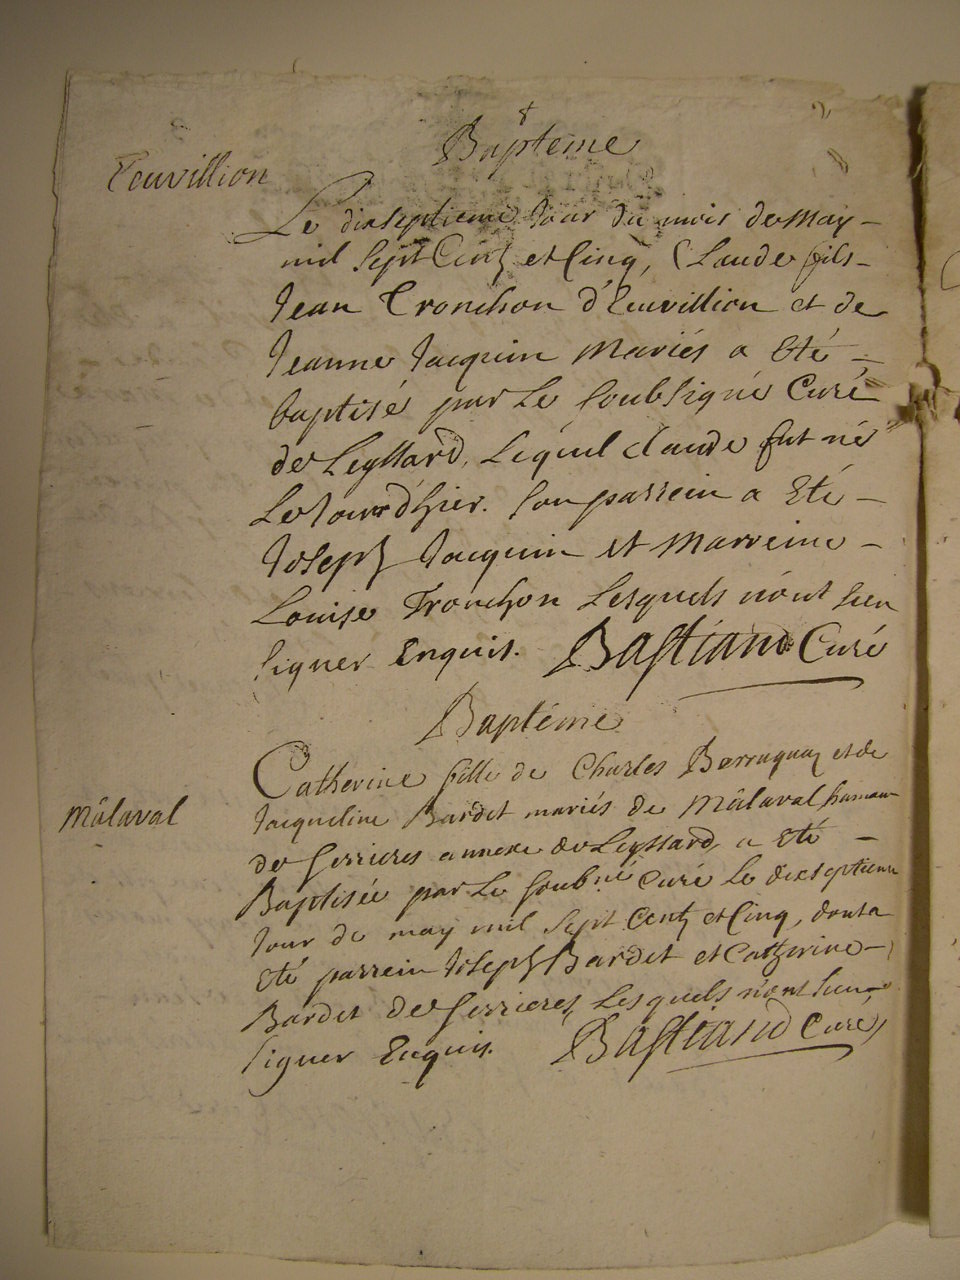 Bâpteme
Leuvillion
Le dixseptieme Jour du mois de May
mil Sept Centz et Cinq, Claude fils
Jean Tronchon d'Leuvillion et de
Jeanne Jacquin Mariés a Eté
baptisé par Le Soubsigné Curé
de Leyssard, Lequel claude fut né
Le Jour d'hier. Son parrein a Eté
Joseph Jacquin et Marreine
Louise Tronchon Lesquels n'ont sceu
signer Enquis. Bastiand Curé
Baptéme
Mâlaval
Catherine fille de Charles Berruquaz et de
Jacqueline Bardet mariés de Mâlaval hameau
de Serrieres annexe de Leyssard, a Eté
Baptisée par Le Soubné Curé Le dixseptieme
Jour de may mil Sept Centz et Cinq, dont a
Eté parrein Joseph Bardet et Catherine
Bardet de Serrieres, Lesquels n'ont sceu
signer Enquis. Bastiand Curé